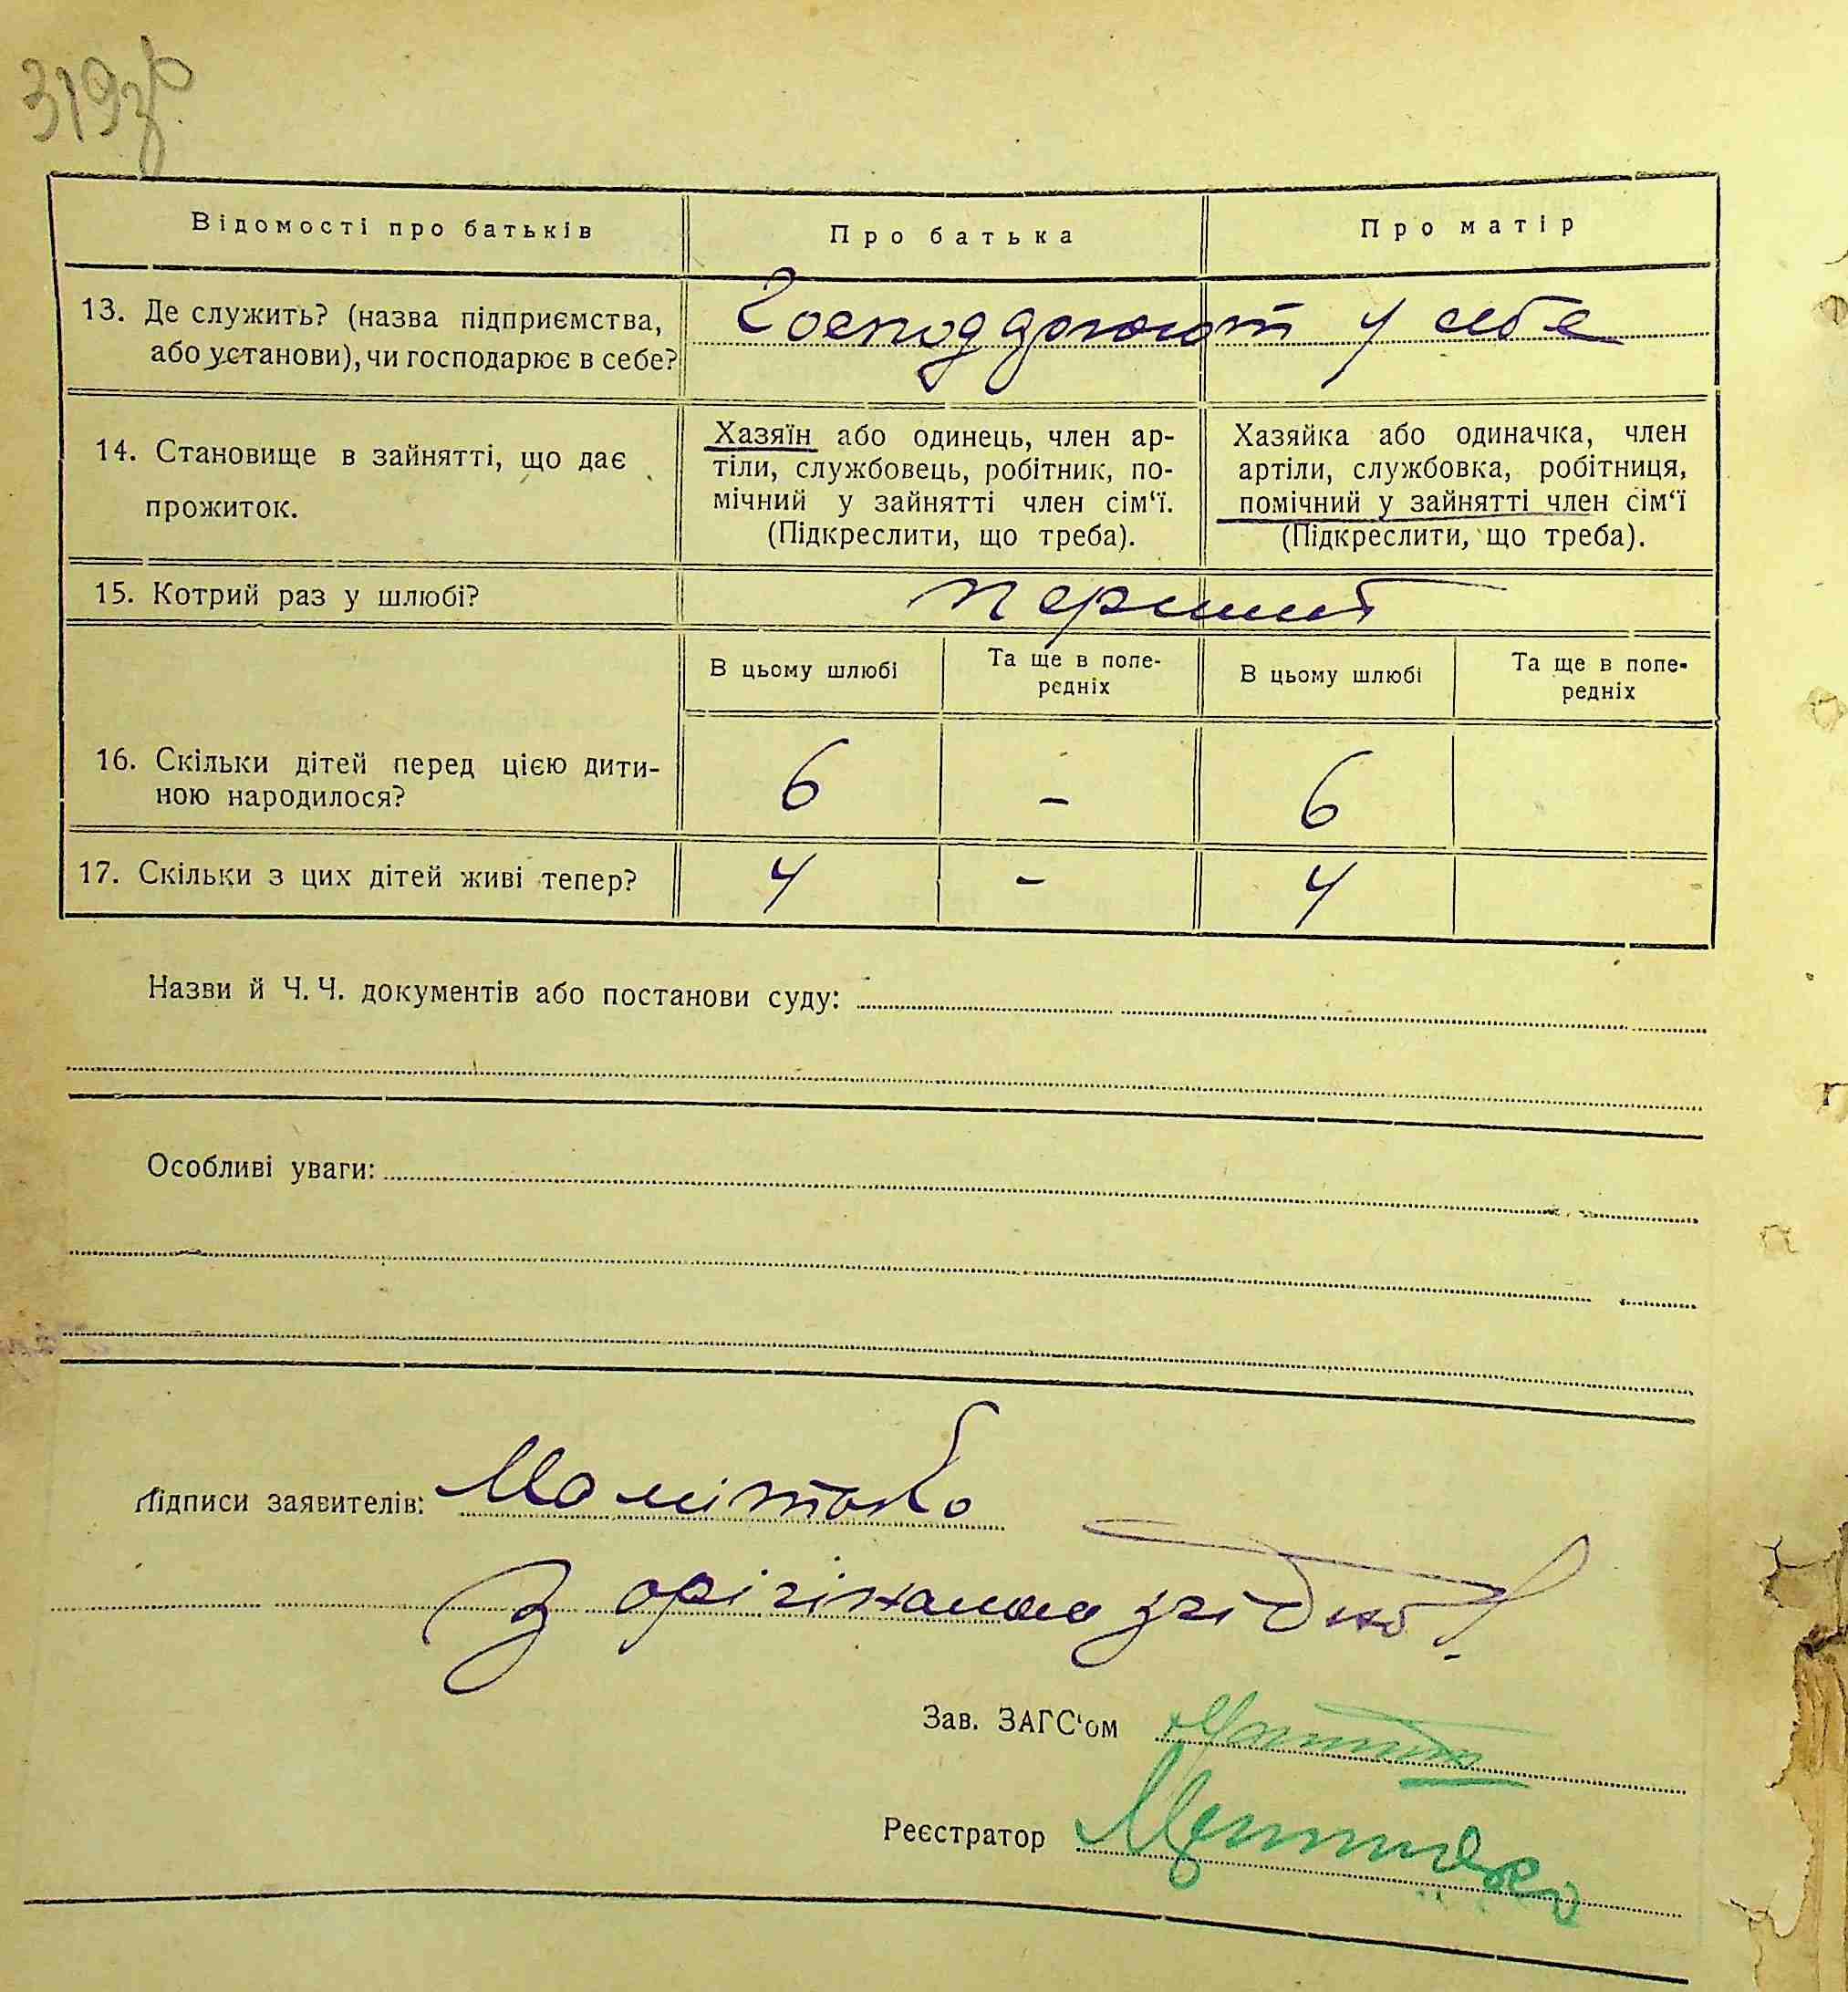 319зв.
Відомості про батьків
Про батька
Про матір
13. Де служить? (назва підприємства,
або установи), чи господарює в себе?
Господарюют у себе
14. Становище в зайнятті, що дає
прожиток.
Хазяїн або одинець, член ар-
тіли, службовець, робітник, по-
мічний у зайнятті член сім‘ї.
(Підкреслити, що треба).
Хазяйка або одиначка, член
артіли, службовка, робітниця,
помічний у зайнятті член сім‘ї
(Підкреслити, що треба).
15. Котрий раз у шлюбі?
перший
В цьому шлюбі
Та ще в попе-
редніх
В цьому шлюбі
Та ще в попе-
редніх
16. Скільки дітей перед цією дити-
ною народилося?
6 - 6
17. Скільки з цих дітей живі тепер?
4 - 4
Назви й Ч. Ч. документів або постанови суду:
Особливі уваги:
Підписи заявителів:
З орігіналом згідно!
Зав. ЗАГС‘ом
Реєстратор